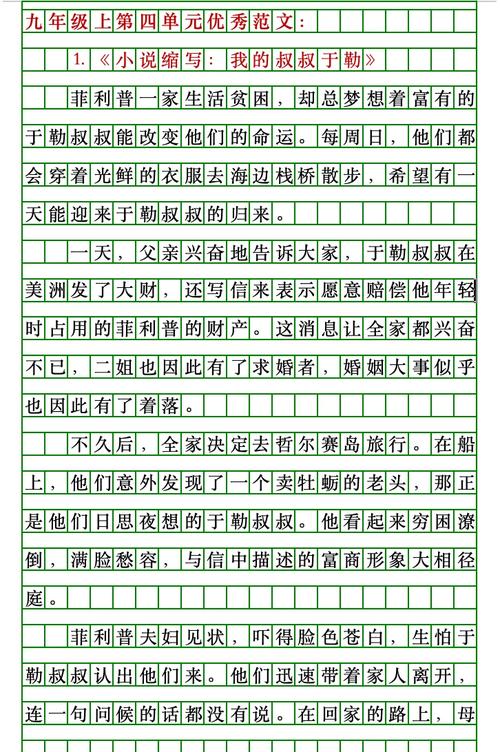 九年级上第四单元优秀范文：
1.《小说缩写：我的叔叔于勒》
菲利普一家生活贫困，却总梦想着富有的
于勒叔叔能改变他们的命运。每周日，他们都
会穿着光鲜的衣服去海边栈桥散步，希望有一
天能迎来于勒叔叔的归来。
一天，父亲兴奋地告诉大家，于勒叔叔在
美洲发了大财，还写信来表示愿意赔偿他年轻
时占用的菲利普的财产。这消息让全家都兴奋
不已，二姐也因此有了求婚者，婚姻大事似乎
也因此有了着落。
不久后，全家决定去哲尔赛岛旅行。在船
上，他们意外发现了一个卖牡蛎的老头，那正
是他们日思夜想的于勒叔叔。他看起来穷困潦
倒，满脸愁容，与信中描述的富商形象大相径
庭。
菲利普夫妇见状，吓得脸色苍白，生怕于
勒叔叔认出他们来。他们迅速带着家人离开，
连一句问候的话都没有说。在回家的路上，母